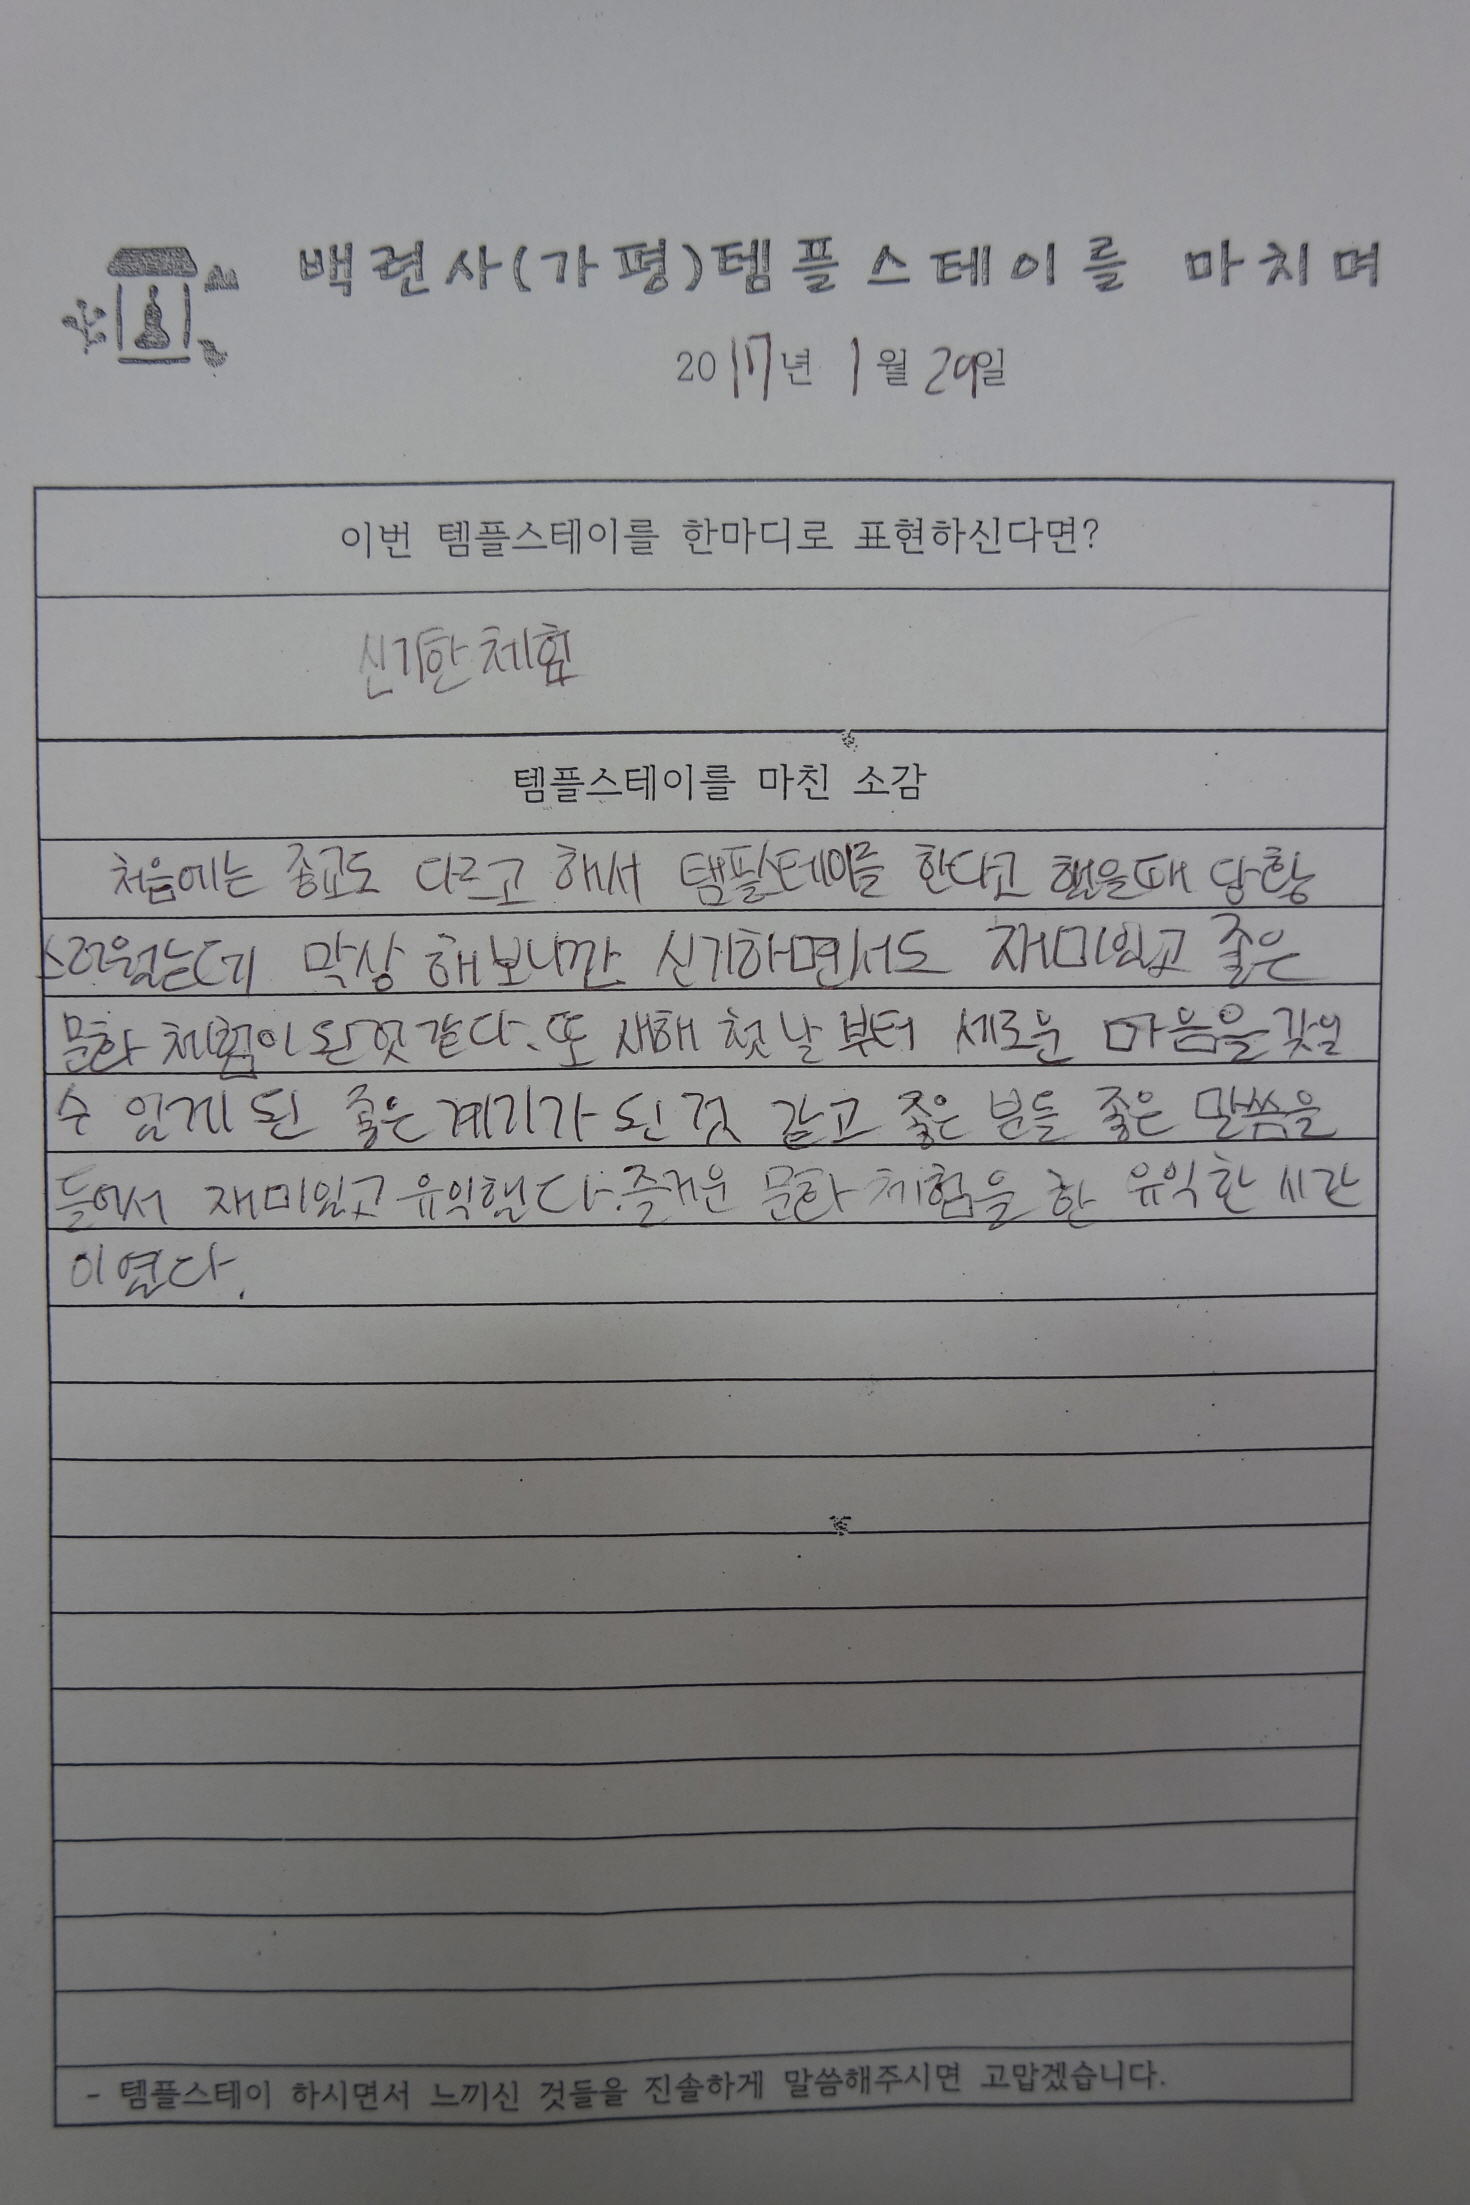 백련사(가평)템플스테이를 마치며
2017년 1월 29일
이번 템플스테이를 한마디로 표현하신다면?
신기한 체험
템플스테이를 마친 소감
처음에는 종교도 다르고 해서 템플스테이를 한다고 했을때 당황
스러웠는데 막상 해보니깐 신기하면서도 재미있고 좋은
문화 체험이 된것 같다. 또 새해 첫날부터 새로운 마음을 갖일
수 있게 된 좋은 계기가 된 것 같고 좋은 분들 좋은 말씀을
들어서 재미있고 유익했다. 즐거운 문화 체험을 한 유익한 시간
이였다.
- 템플스테이 하시면서 느끼신 것들을 진솔하게 말씀해주시면 고맙겠습니다.